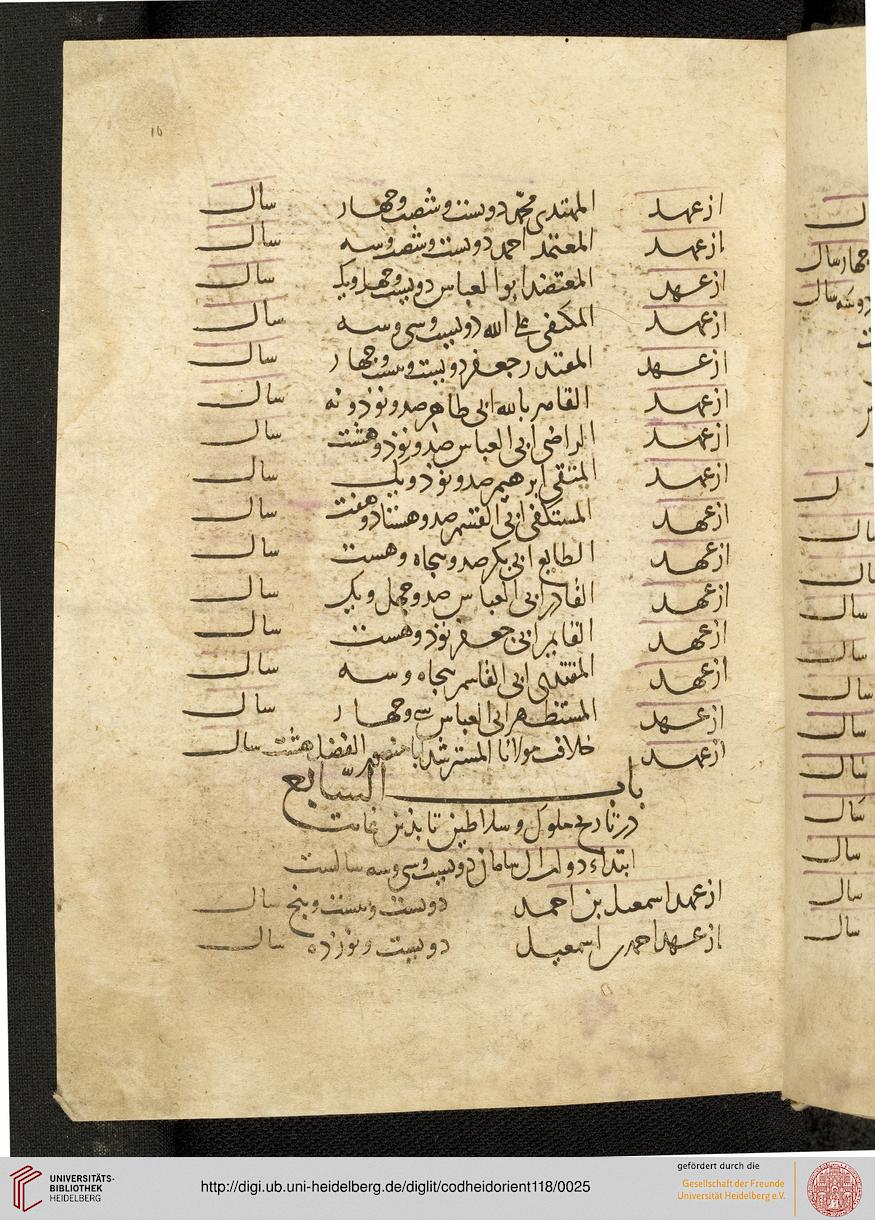 10
از عهد المهتدی محمد دویست و شصت و چهار سال
از عهد المعتمد احمد دویست و شصت و سه سال
از عهد المعتضد ابو العباس دویست و چهل و یک سال
از عهد المکتفی علی الله دویست و سی و سه سال
از عهد المقتدر جعفر دویست و بیست و چهار سال
از عهد القاهر بالله ابی طاهر صد و نوذ و نه سال
از عهد الراضی ابی العباس صد و نوذ و هشت سال
از عهد المتقی ابرهیم صد و نوذ و یک سال
از عهد المستکفی ابی القسم صد و هشتاد و هفت سال
از عهد الطایع ابی بکر صد و پنجاه و هشت سال
از عهد القادر ابی العباس صد و چهل و یک سال
از عهد القایم ابی جعفر نوذ و هشت سال
از عهد المقتدی ابی القاسم پنجاه و سه سال
از عهد المستظهر ابی العباس سی و چهار سال
از عهد خلافت مولانا المسترشد بالله منصور الفضل هشت سال
باب السابع
در تاریخ ملوک و سلاطین تا بذین غایت
ابتداء دولت ال سامان دویست و سی و سه سالست
از عهد اسمعیل بن احمد دویست و بیست و پنج سال
از عهد احمد بن اسمعیل دویست و نوزده سال
سال
چهار سال
سال
سال
سال
سال
سال
سال
سال
سال
سال
سال
سال
سال
UNIVERSITÄTS-
BIBLIOTHEK
HEIDELBERG
http://digi.ub.uni-heidelberg.de/diglit/codheidorient118/0025
gefördert durch die
Gesellschaft der Freunde
Universität Heidelberg e.V.